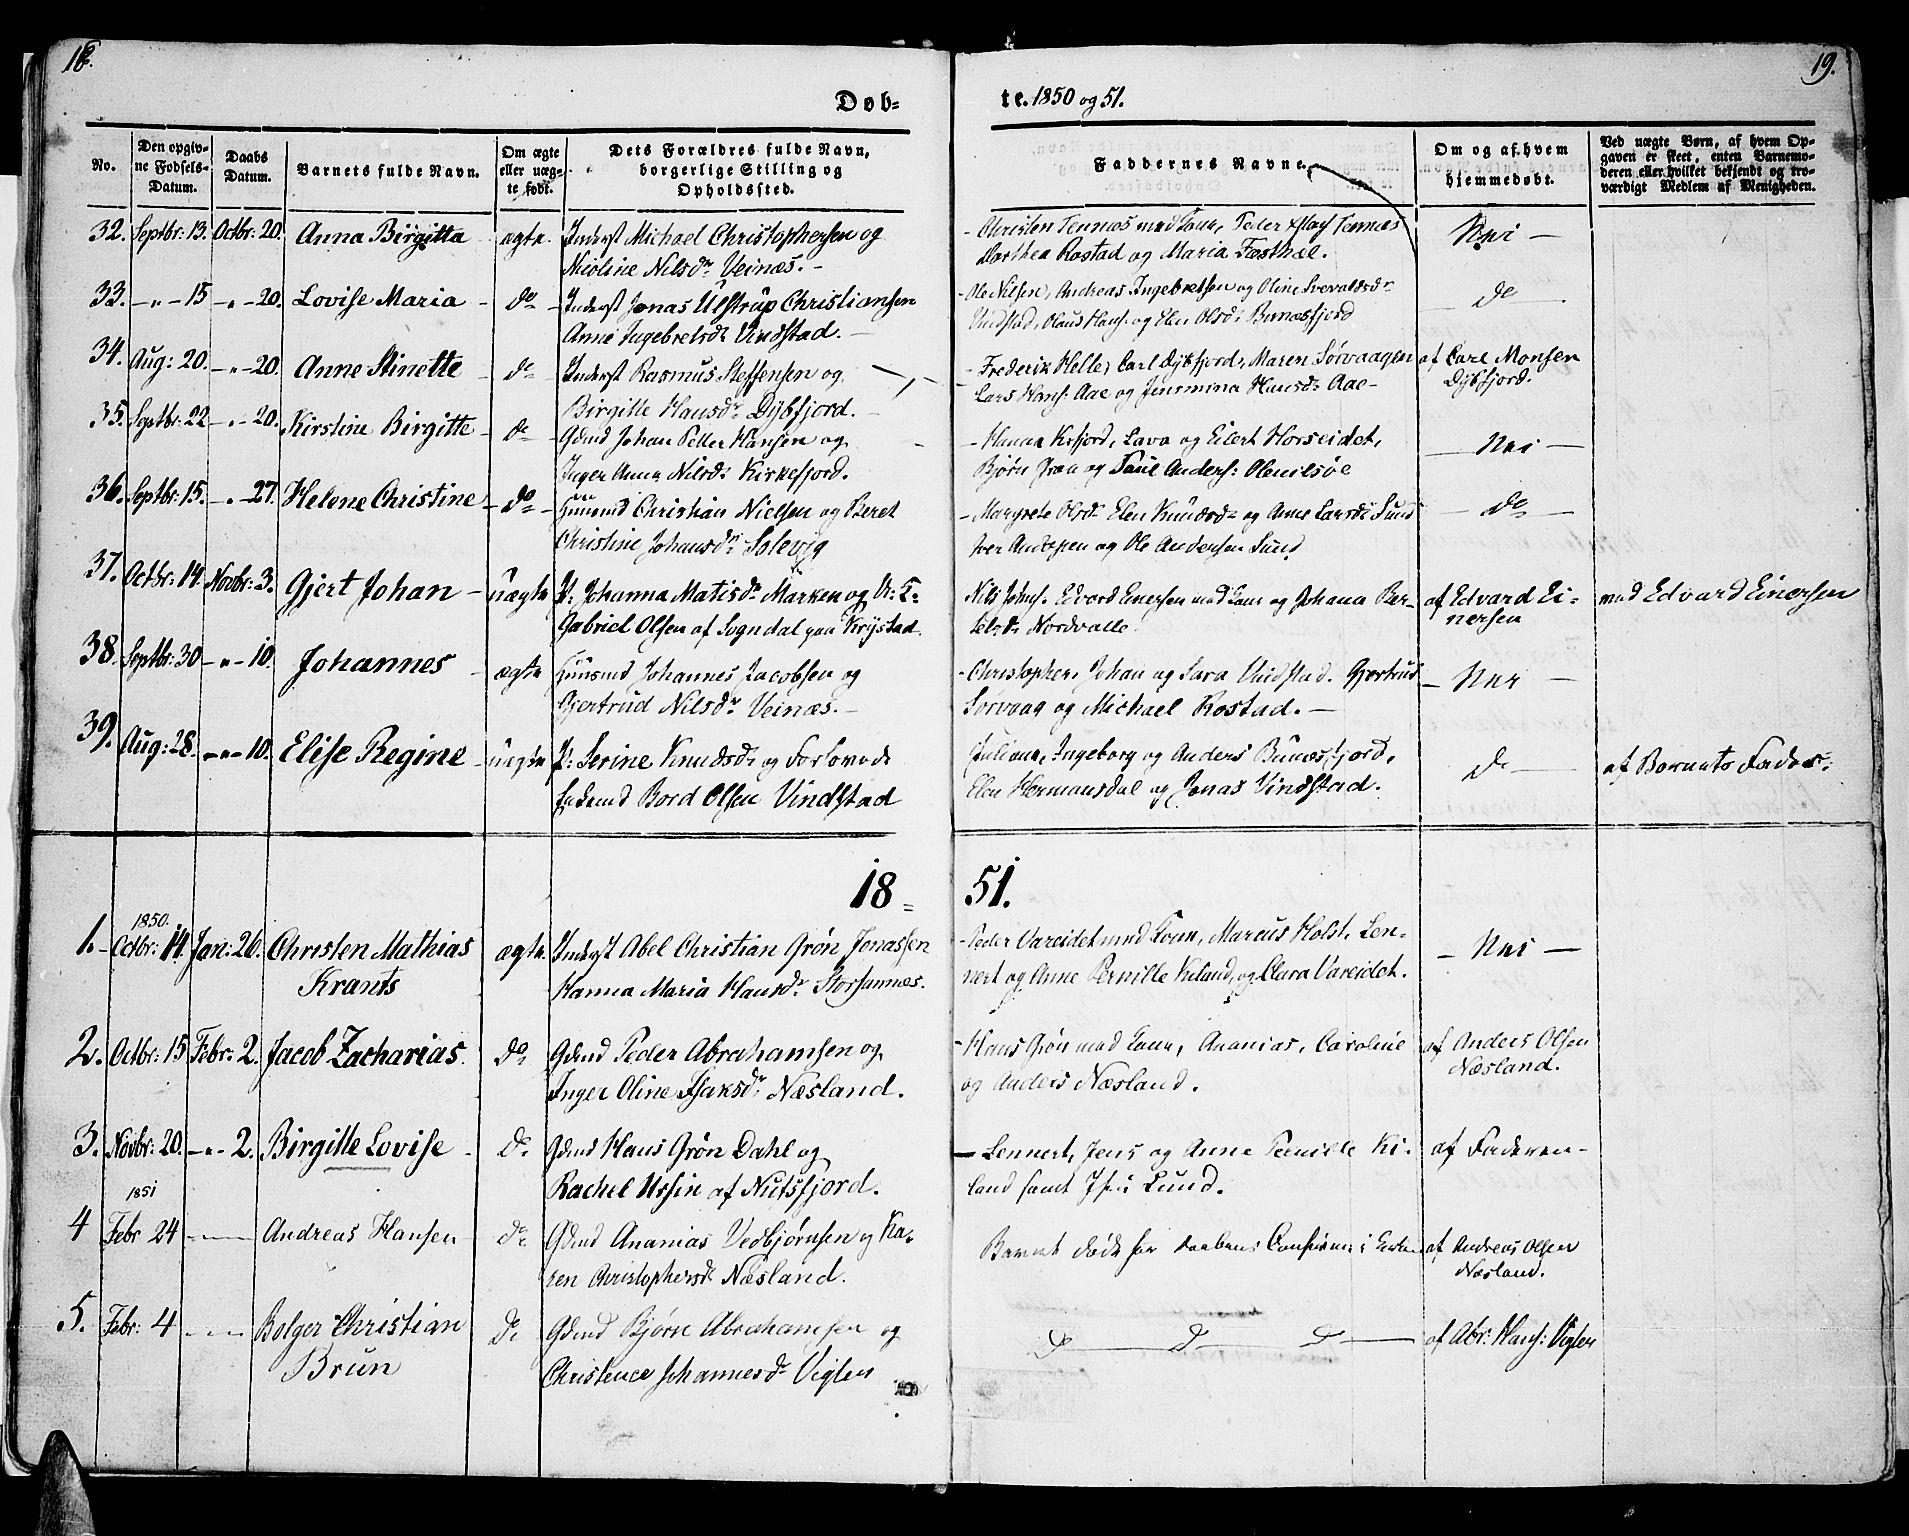 18.
19.
Døb=
te. 1850 og 51.
No.
Den opgiv-
ne Fødsels-
Datum.
Daabs
Datum.
Barnets fulde Navn.
Om ægte
eller uæg-
te født.
Dets Forældres fulde Navn,
borgerlige Stilling og
Opholdssted.
Faddernes Navne.
Om og af hvem
hjemmedøbt.
Ved uægte Børn, af hvem Op-
gaven er skeet, enten Barnemo-
deren eller hvilket bekjendt og tro-
værdigt Medlem af Menigheden.
32. Septbr: 13. Octbr: 20. Anna Birgitta ægte. Inderst Michael Christophersen og
Nicoline Nilsdr Veinæs. -
- Christen Tennæs med Kone, Peder Tennæs
Dorthea Rostad og Maria Fæsthæl.
Nei -
33. - " - 15 - " - 20. Lovise Maria - do - Inderst Jonas Ulstrup Christiansen
Anne Ingebretsdr Vindstad. -
- Ole Nilsen, Andreas Ingebretsen og Oline
Vindstad, Olaus Hans. og Elen Olsdr Bunæsfjord
do
34. Aug: 20. - " - 20. Anne Stinette - do - Inderst Rasmus Steffensen og
Birgitte Hansdr Dybfjord. -
- Frederik Helle, Carl Dybfjord, Maren Sørvaagen
Lars Hans: Aae og Jensmina Hansdr Aae -
af Carl Monsen
Dybfjord.
35. Septbr: 22 - " - 20. Kirstine Birgitte - do - Gdmd Johan Petter Hansen og
Inger Anna Nilsdr Kirkefjord.
Lava og Eilert Horseidet,
Bjørn og Paul Anders: Olenilsøe
Nei -
36. Septbr: 15. - " - 27. Helene Christine - do - Huusmd Christian Nielsen og Beret
Christine Johansdr Solevig
- Margrete Olsdr Elen Knudsdr og Anne Larsdr Sund
Iver og Ole Andersen Sund
- do -
37. Octbr: 14. Novbr: 3. Gjert Johan - uægte P: Johanna Matisdr Marken og
Gabriel Olsen af Sogndal paa Krystad.
Nils Johns. Edvard Einersen med Kone og Johana Ber-
Nordvalle
af Edvard Ei-
nersen
med Edvard Einersen
38. Septbr: 30 - " - 10. Johannes - ægte Huusmd Johannes Jacobsen og
Gjertrud Nilsdr Veinæs. -
- Christopher, Johan og Sara Vindstad. Gjertrud
Sørvaag og Michael Rostad. -
- Nei -
39. Aug: 28. - " - 10. Elise Regine - uægte P: Serine Knudsdr og Forlovede
Bord Olsen Vindstad
Juliana, Ingeborg og Anders Bunæsfjord,
Elen Hermansdal og Jonas Vindstad.
do -
af Barnets Fader:
18 = 51.
1850.
1. - Octbr: 14. Jan: 26. Christen Mathias
Krants
ægte. Inderst Abel Christian Grøn Jonassen
Hanna Maria Hansdr Storsannæs.
- Peder Vareidet med Kone, Marcus Holst, Len-
nert og Anne Pernille Kiland, og Clara Vareidet.
- Nei -
2. Octbr: 15 Febr: 2. Jacob Zacharias. do Gdmd Peder Abrahamsen og
Inger Oline Isaksdr Næsland.
- Hans Grøn med Kone, Ananias, Caroline
og Anders Næsland.
af Anders Olsen
Næsland.
3. Novbr: 20. - " - 2. Birgitte Lovise - do Gdmd Hans Grøn Dahl og
Rachel Ursin af Nutsfjord.
- Lennert, Jens og Anne Pernille Ki-
land samt Lund.
af Faderen -
1851
4 Febr 24 Andreas Hansen - do Gdmd Ananias Vedbjørnsen og Ka-
ren Christophersdr Næsland.
Barnet døde før Daabens i Kirken
af Andreas Olsen
Næsland.
5. Febr: 4 Bolger Christian
Brun
do Gdmd Bjørn Abrahamsen og
Christence Johannesdr Vigten
do do do
af Abr: Hans: Vigten